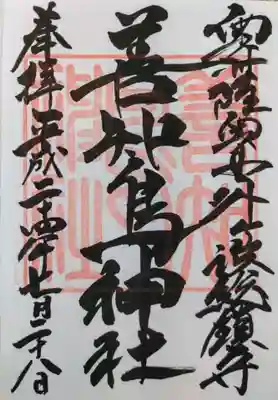 奥州陸奥外ヶ浜総鎮守
善知鳥神社
奉拝 平成二十四年七月二十八日